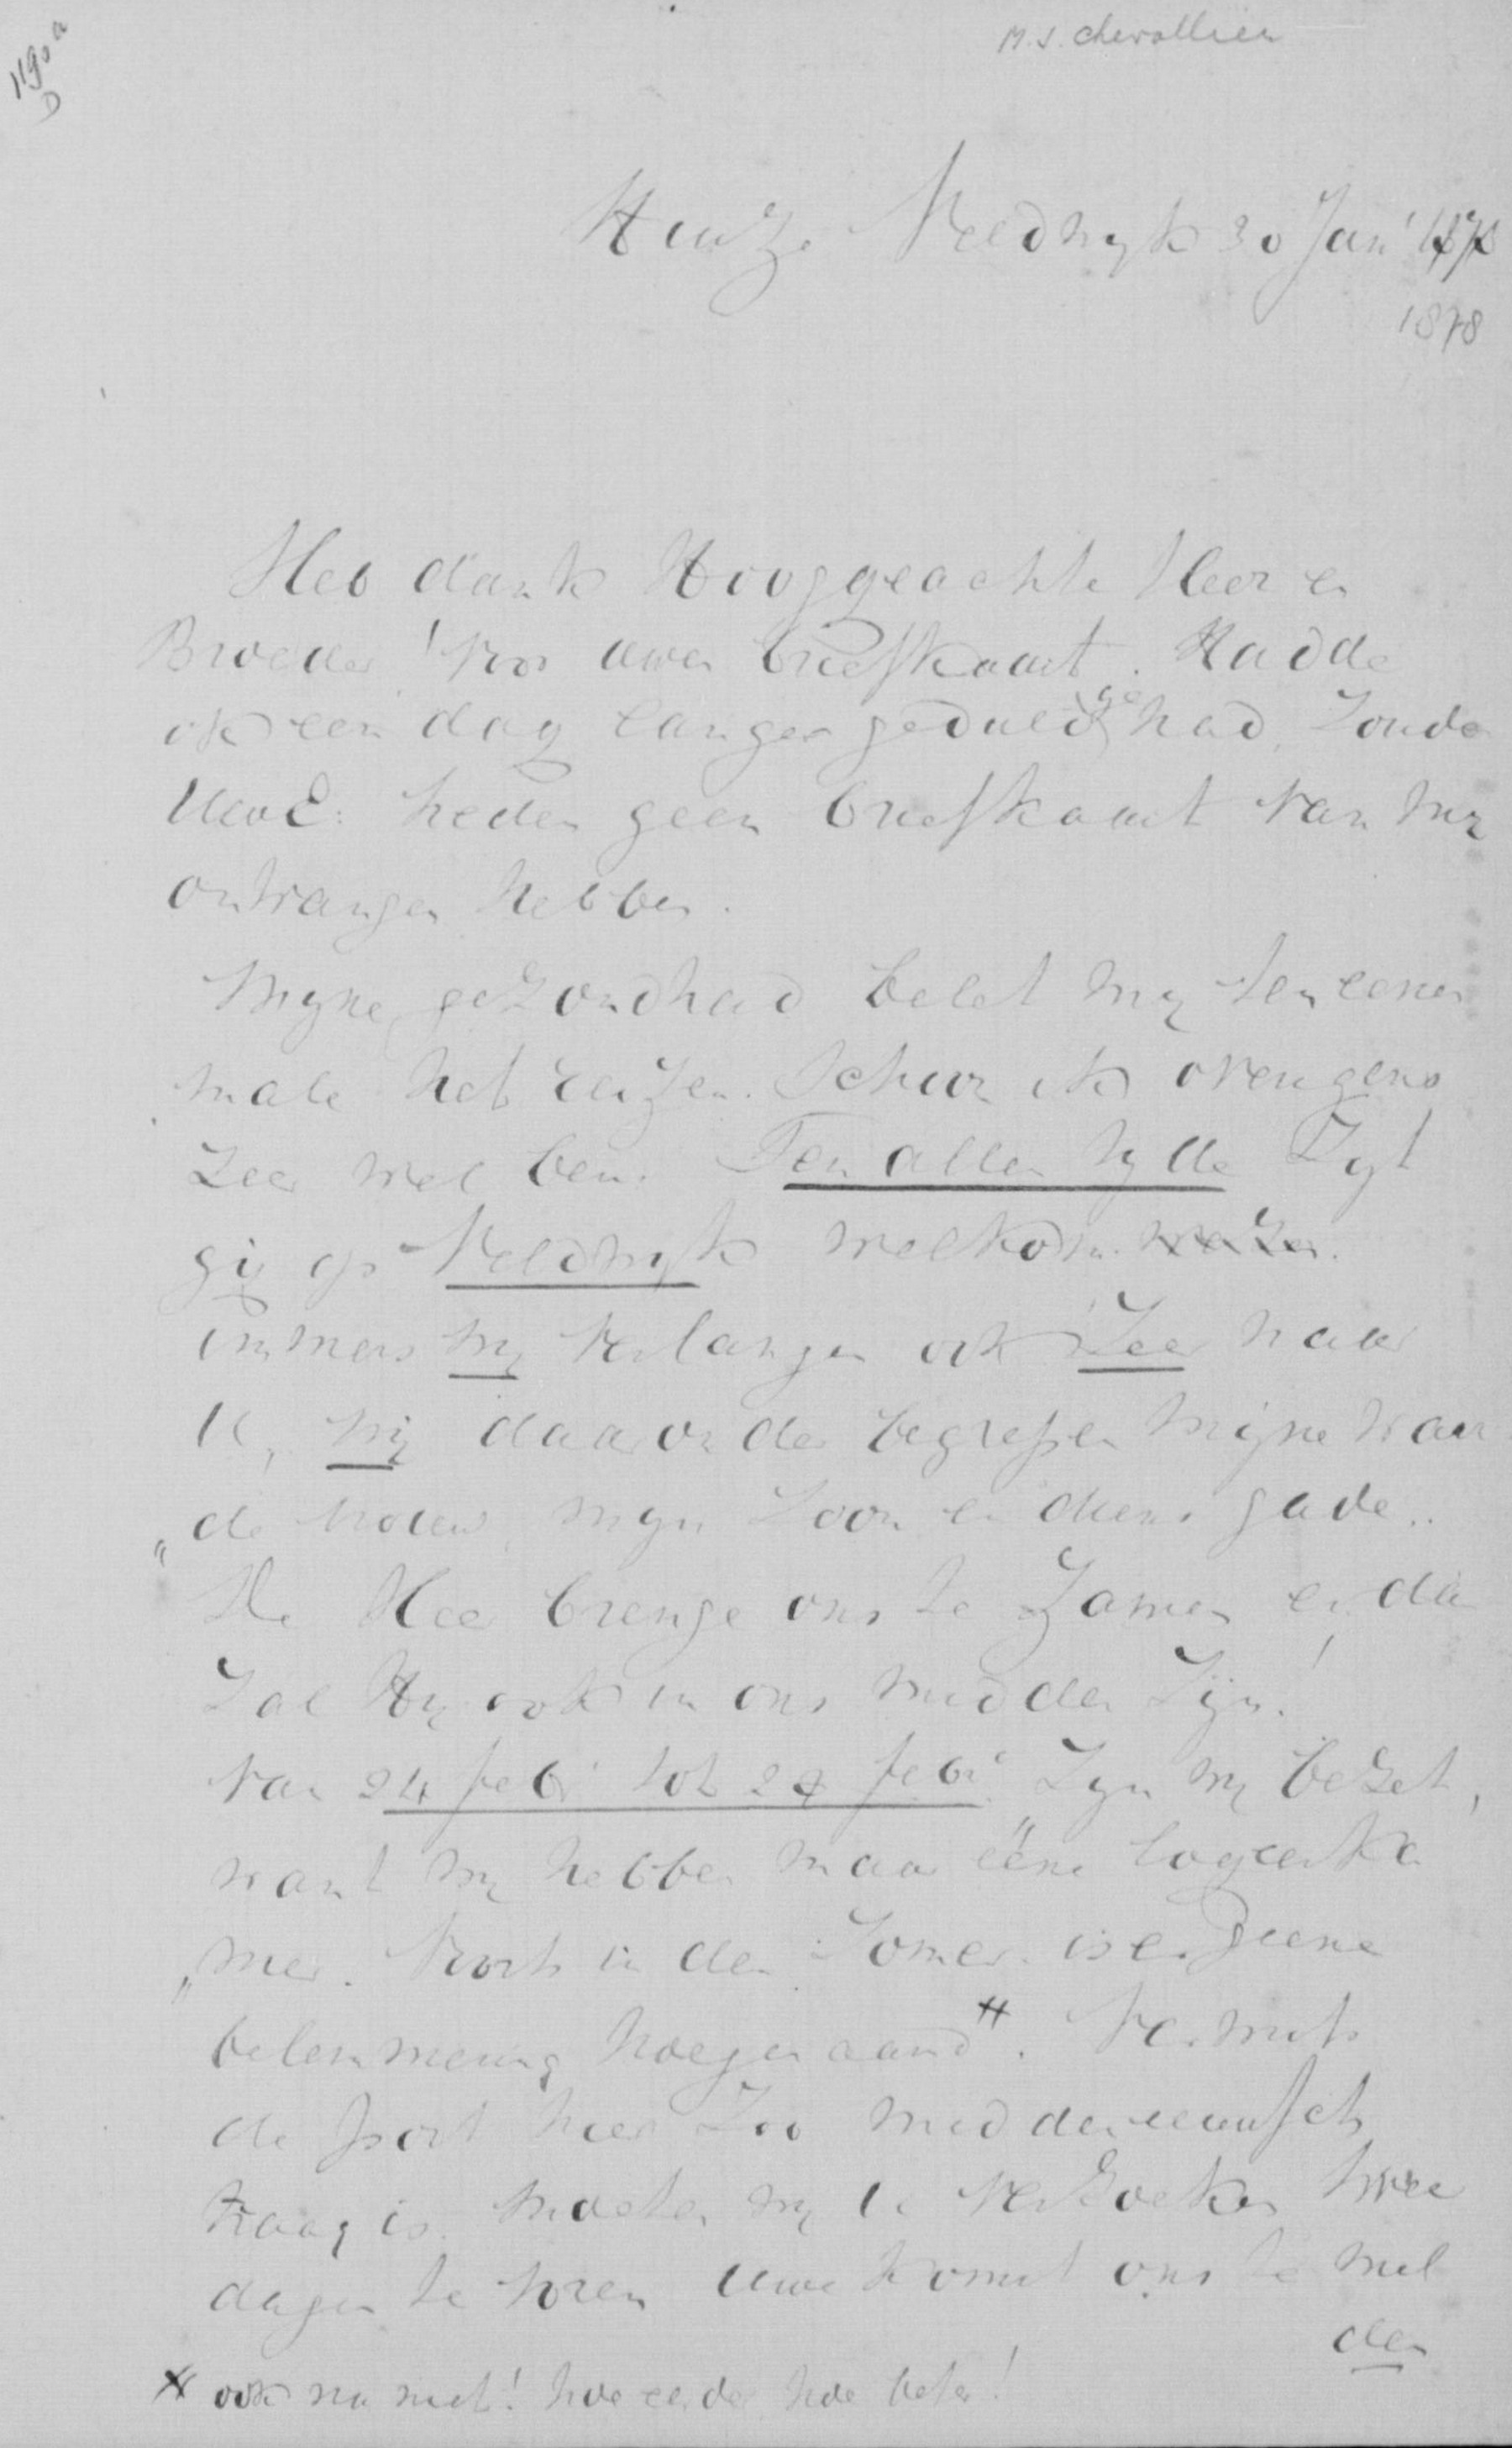 1190a
D
M.S. Chevallier
Huize Veldwyk 30 Jan'
1878
Heb dank Hooggeachte Heer en
Broeder! voor uwen briefkaart. Hadde
ik een dag langer geduld gehad, Zoude
UwE: heden geen briefkaart van my
ontvangen hebben.
Myne gezondheid belet my ten eenen
male het reizen. Schoon ik overigens
Zeer wel ben. Ten allen tyde Zyt
gij op Veldwyk welkom.
immers wy verlangen ook Zeer naar
U, wij daaronder begrepen mijne waar
"de vrouw, myn Zoon en diens gade..
De Heer brenge ons te Zamen en dan
Zal Hy ook in ons midden Zijn!
Van 24 febr tot 27 febr Zyn wy bezet,
want wy hebben maar ééne logeerka
"mer. Voorts in den Zomer is er geene
belemmering hoegenaamd #. Vermits
de post hier Zoo middeneeuwsch
traag is, moeten wy U verzoeken twee
dagen te voren uwe komst ons te mel
den
# ook nu niet! hoe eerder hoe beter!